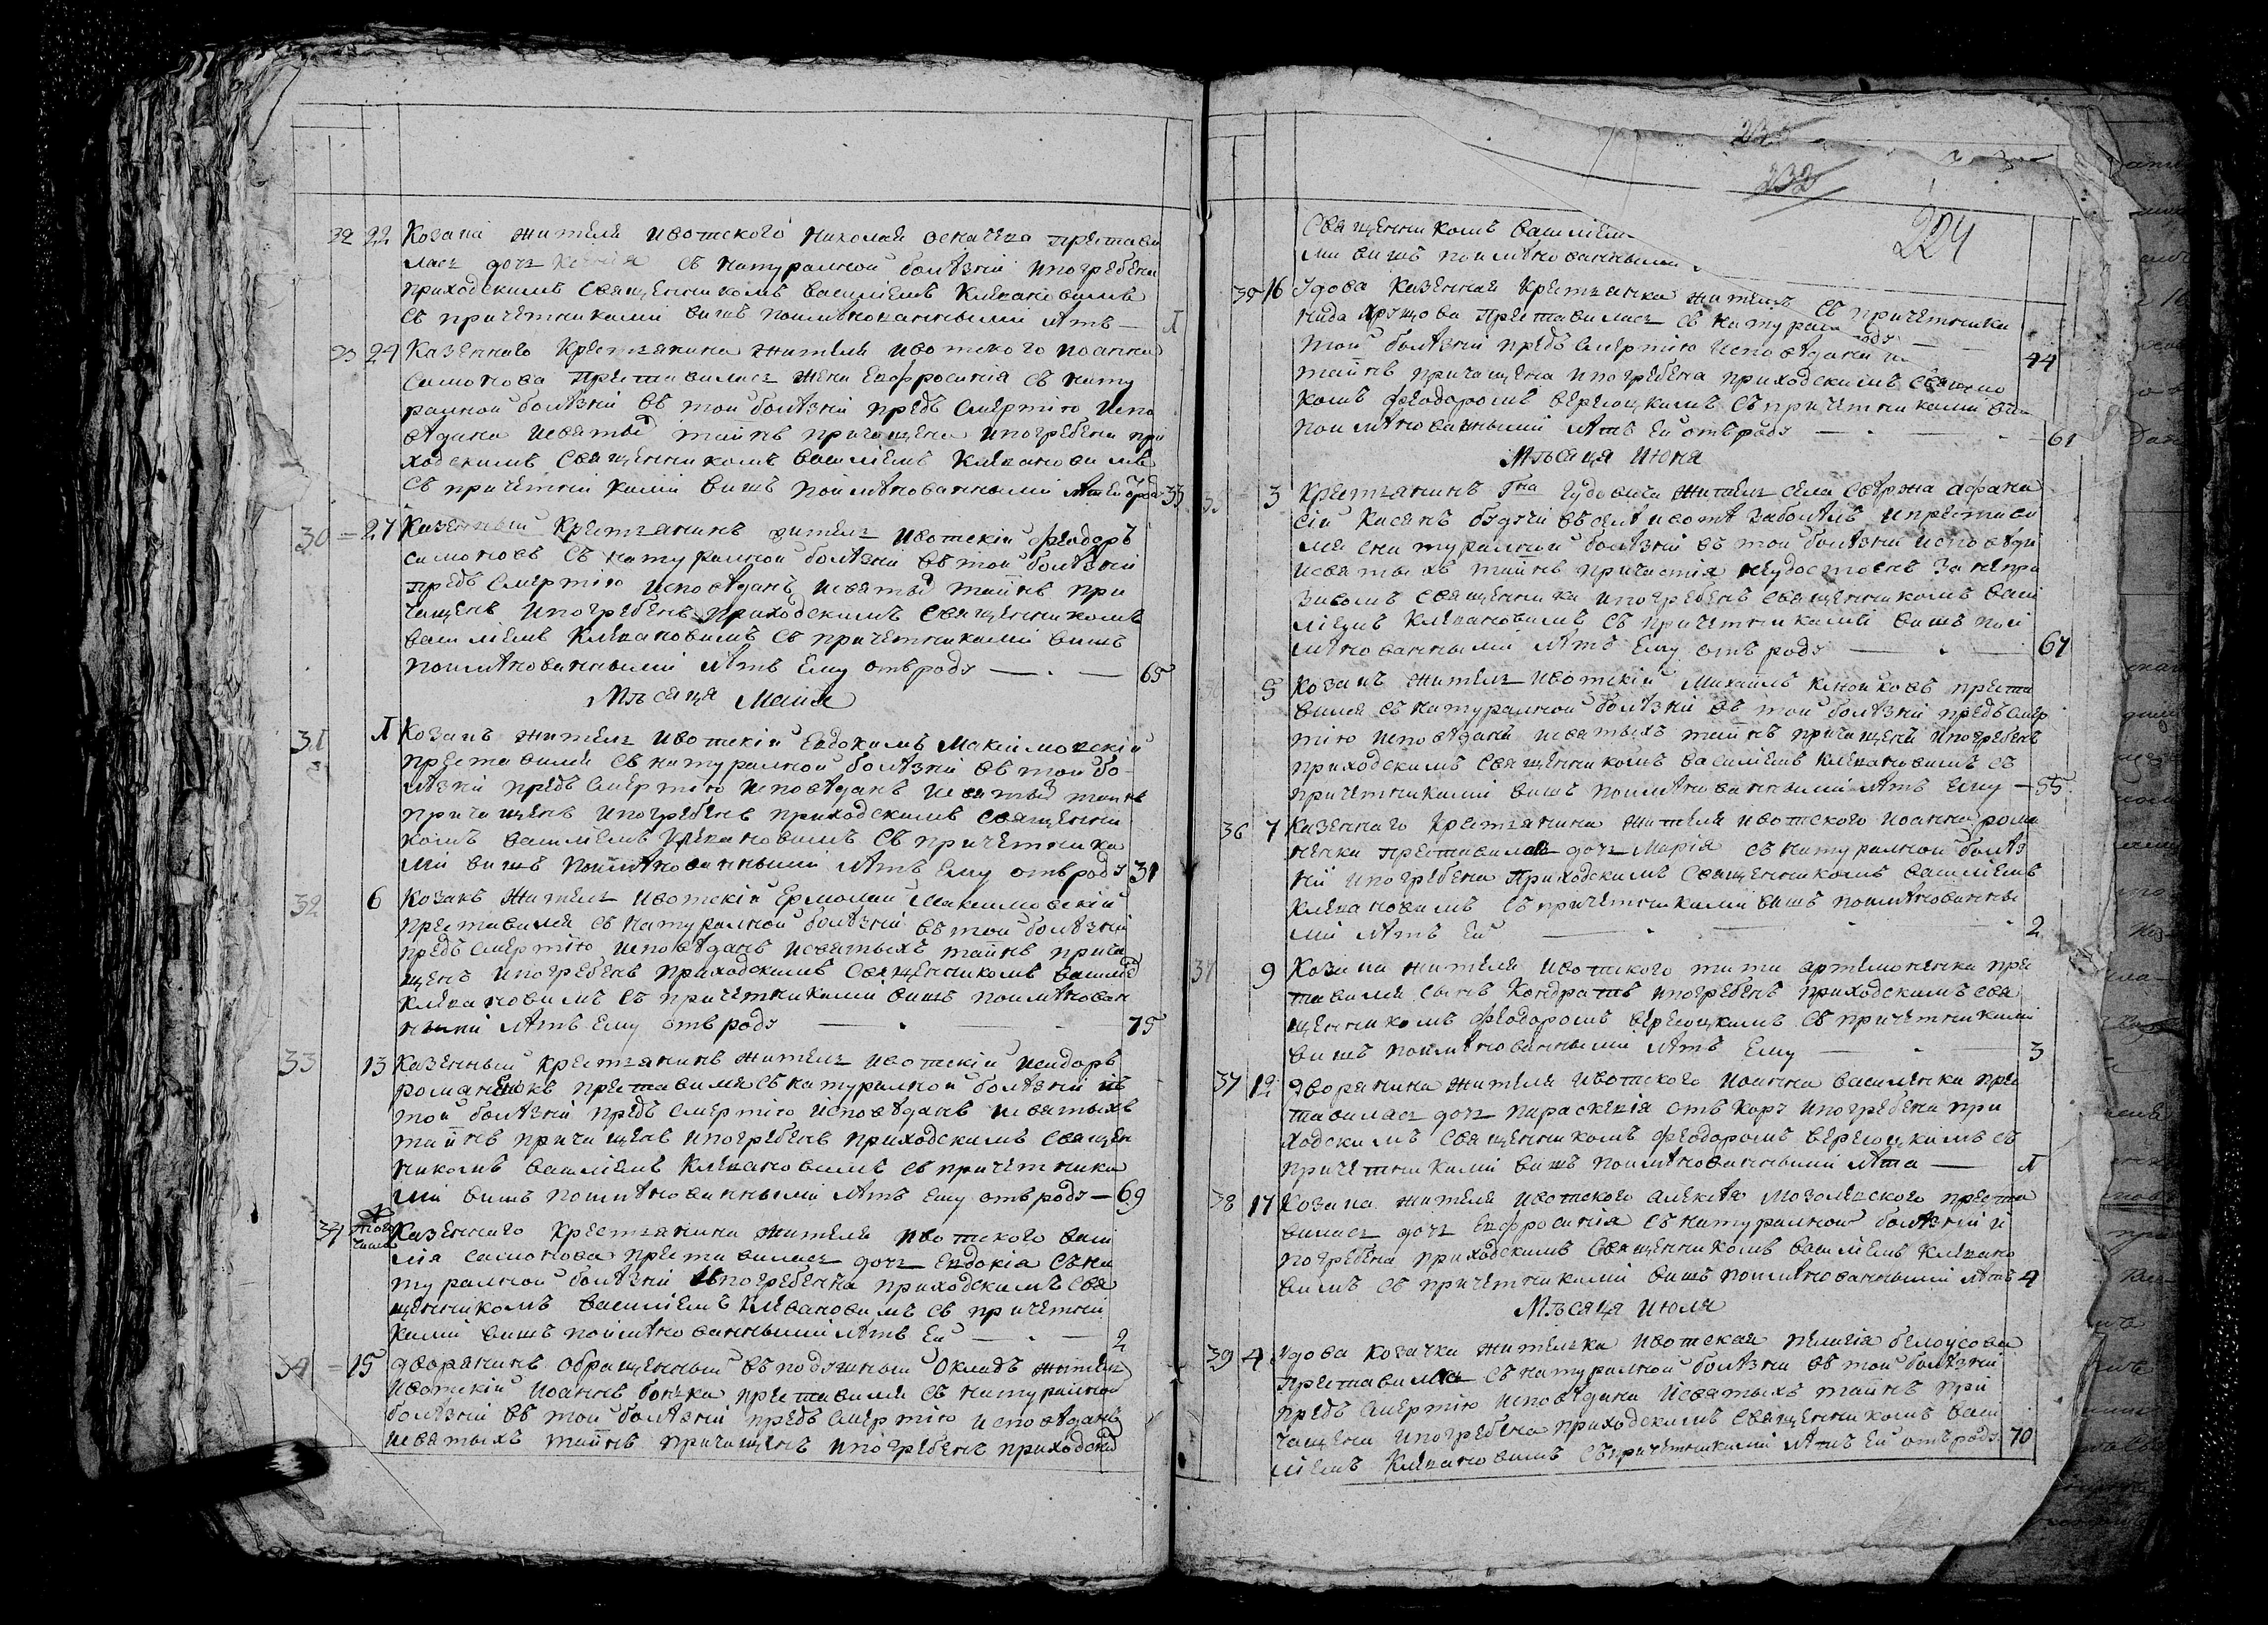 32 22 Козака жителя ивотского николая осначева престави
лась дочь съ натуралной болѣзни и погребена
приходскимъ священникомъ василіемъ Клевановимъ
съ причетниками вишъ поимѣнованными лѣтъ — Л
33 24 Казенного крестьянина жителя ивотского иоанна
симонова преставилась жена Евфросинія съ нату
ралной болѣзни въ той болѣзни предъ смертію испо
вѣдана и святыхъ таинъ причащена и погребена при
ходскимъ священникомъ василіемъ Клевановимъ
съ причетниками вишъ поимѣнованными лѣтъ ей отъ роду 33
30 27 Казенный крестьянинъ житель ивотскій феодоръ
симоновъ съ натуралной болѣзни въ той болѣзни
предъ смертію исповѣданъ и святыхъ таинъ при
чащенъ и погребенъ приходскимъ священникомъ
василіемъ Клевановимъ съ причетниками вишъ
поимѣнованными лѣтъ Ему отъ роду — 65
Мѣсяца Маия
31 Л Козакъ житель ивотскій Евдокимъ Максимовскій
преставился съ натуралной болѣзни въ той бо
лѣзни предъ смертію исповѣданъ и святыхъ таинъ
причащенъ и погребенъ приходскимъ священни
комъ василіемъ Клевановимъ съ причетника
ми вишъ поимѣнованными лѣтъ Ему отъ роду 31
32 6 Козакъ житель ивотскій Ермолай Максимовскій
преставился съ натуралной болѣзни въ той болѣзни
предъ смертію исповѣданъ и святыхъ таинъ прича
щенъ и погребенъ приходскимъ священникомъ василіемъ
Клевановимъ съ причетниками вишъ поимѣнован
ными лѣтъ Ему отъ роду — 75
33 13 Казенный крестьянинъ житель ивотскій исидоръ
романенокъ преставился съ натуралной болѣзни въ
той болѣзни предъ смертію исповѣданъ и святыхъ
таинъ причащенъ и погребенъ приходскимъ священ
никомъ василіемъ Клевановимъ съ причетника
ми вишъ поимѣнованными лѣтъ Ему отъ роду — 69
34 того числа Казенного крестьянина жителя ивотского васи
лія самонова преставилась дочь Евдокія съ на
туралной болѣзни и погребенна приходскимъ свя
щенникомъ василіемъ Клевановимъ съ причетни
ками вишъ поимѣнованными лѣтъ Ей — 2
34 15 дворянинъ обращенный въ подушный окладъ житель
ивотскій иоаннъ преставился съ натуралной
болѣзни въ той болѣзни предъ смертію исповѣданъ
и святыхъ таинъ причащенъ и погребенъ приходским
232
224
священникомъ василіем
ми вишъ поимѣнованными
съ причетника
44
35 16 Удова казенная крестьянка житель
нида преставилась съ натурал
той болѣзни предъ смертію исповѣдана и
таинъ причащена и погребена приходскимъ священно
комъ феодоромъ верещкимъ съ причетниками виш
поимѣнованными лѣтъ Ей отъ роду — 61
Мѣсяца июня
3 Крестьянинъ гна гудовича житель села свѣржа афана
сій Касянъ будучи въ селѣ ивотѣ заболѣлъ и престави
лся с натуралной болѣзни въ той болѣзни исповѣди
и святыхъ таинъ причастія неудостоенъ за непри
зивомъ священника и погребенъ священникомъ васи
ліемъ Клевановимъ съ причетниками вишъ пои
мѣнованными лѣтъ Ему отъ роду — 67
5 Козакъ житель ивотскій Михаилъ преста
вился съ натуралной болѣзни въ той болѣзни предъ смер
тію исповѣданъ и святыхъ таинъ причащенъ и погребенъ
приходскимъ священникомъ василіемъ Клевановимъ съ
причетниками вишъ поимѣнованными лѣтъ Ему — 55
36 7 Казенного крестьянина жителя ивотского иоанна рома
ненка преставилась дочь Марія съ натуралной болѣз
ни и погребена приходскимъ священникомъ василіемъ
Клевановимъ съ причетниками вишъ поимѣнованны
ми лѣтъ Ей — 2
37 9 Козака жителя ивотского тита артемоненка пре
тавился сынъ Кондратъ и погребенъ приходскимъ свя
щенникомъ феодоромъ верещкимъ съ причетниками
вишъ поимѣнованными лѣтъ Ему — 3
37 12 дворянина жителя ивотского иоанна василенка пре
тавилась дочь параскевія отъ кору и погребена при
ходскимъ священникомъ феодоромъ верещкимъ съ
причетниками вишъ поимѣнованными лѣта — Л
38 17 Козака жителя ивотского алексѣя мозолевского преста
вилась дочь Евфросинія съ натуралной болѣзни и
погребена приходскимъ священникомъ василіемъ Клевано
вимъ съ причетниками вишъ поимѣнованными лѣтъ 4
Мѣсяца июля
39 4 Удова козачка жителька ивотская пелагія белоусова
преставилась съ натуралной болѣзни въ той болѣзни
предъ смертію исповѣдана и святыхъ таинъ при
чащена и погребена приходскимъ священникомъ васи
ліемъ Клевановимъ съ причетниками лѣтъ Ей отъ роду 70